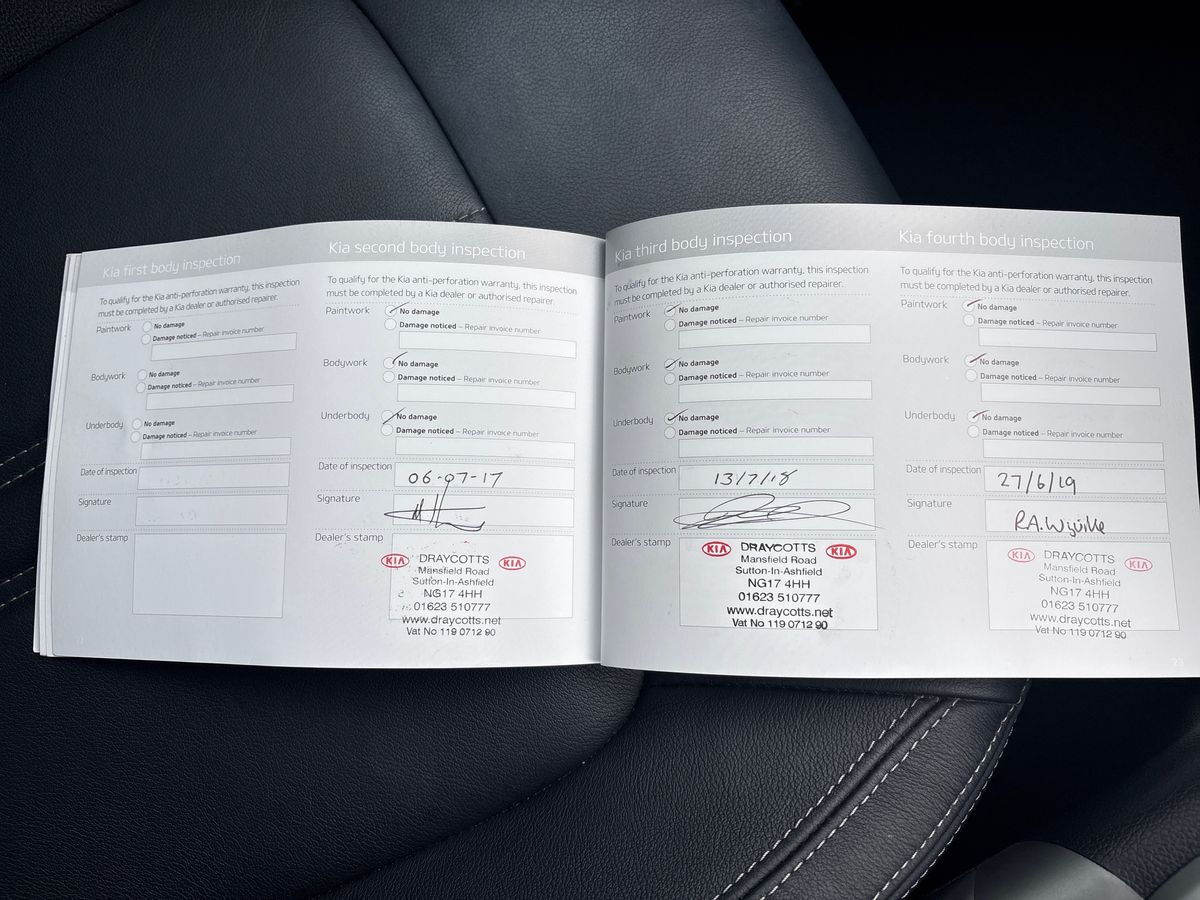 Kia first body inspection
To qualify for the Kia anti-perforation warranty, this inspection
must be completed by a Kia dealer or authorised repairer.
Paintwork No damage
Damage noticed – Repair invoice number
Bodywork No damage
Damage noticed – Repair invoice number
Underbody No damage
Damage noticed – Repair invoice number
Date of inspection
Signature
Dealer's stamp
Kia second body inspection
To qualify for the Kia anti-perforation warranty, this inspection
must be completed by a Kia dealer or authorised repairer.
Paintwork No damage
Damage noticed – Repair invoice number
Bodywork No damage
Damage noticed – Repair invoice number
Underbody No damage
Damage noticed – Repair invoice number
Date of inspection 06-07-17
Signature
Dealer's stamp
KIA DRAYCOTTS KIA
Mansfield Road
Sutton-In-Ashfield
NG17 4HH
01623 510777
www.draycotts.net
Vat No 119 0712 90
Kia third body inspection
To qualify for the Kia anti-perforation warranty, this inspection
must be completed by a Kia dealer or authorised repairer.
Paintwork No damage
Damage noticed – Repair invoice number
Bodywork No damage
Damage noticed – Repair invoice number
Underbody No damage
Damage noticed – Repair invoice number
Date of inspection 13/7/18
Signature
Dealer's stamp
KIA DRAYCOTTS KIA
Mansfield Road
Sutton-In-Ashfield
NG17 4HH
01623 510777
www.draycotts.net
Vat No 119 0712 90
Kia fourth body inspection
To qualify for the Kia anti-perforation warranty, this inspection
must be completed by a Kia dealer or authorised repairer.
Paintwork No damage
Damage noticed – Repair invoice number
Bodywork No damage
Damage noticed – Repair invoice number
Underbody No damage
Damage noticed – Repair invoice number
Date of inspection 27/6/19
Signature R.A.
Dealer's stamp
KIA DRAYCOTTS KIA
Mansfield Road
Sutton-In-Ashfield
NG17 4HH
01623 510777
www.draycotts.net
Vat No 119 0712 90